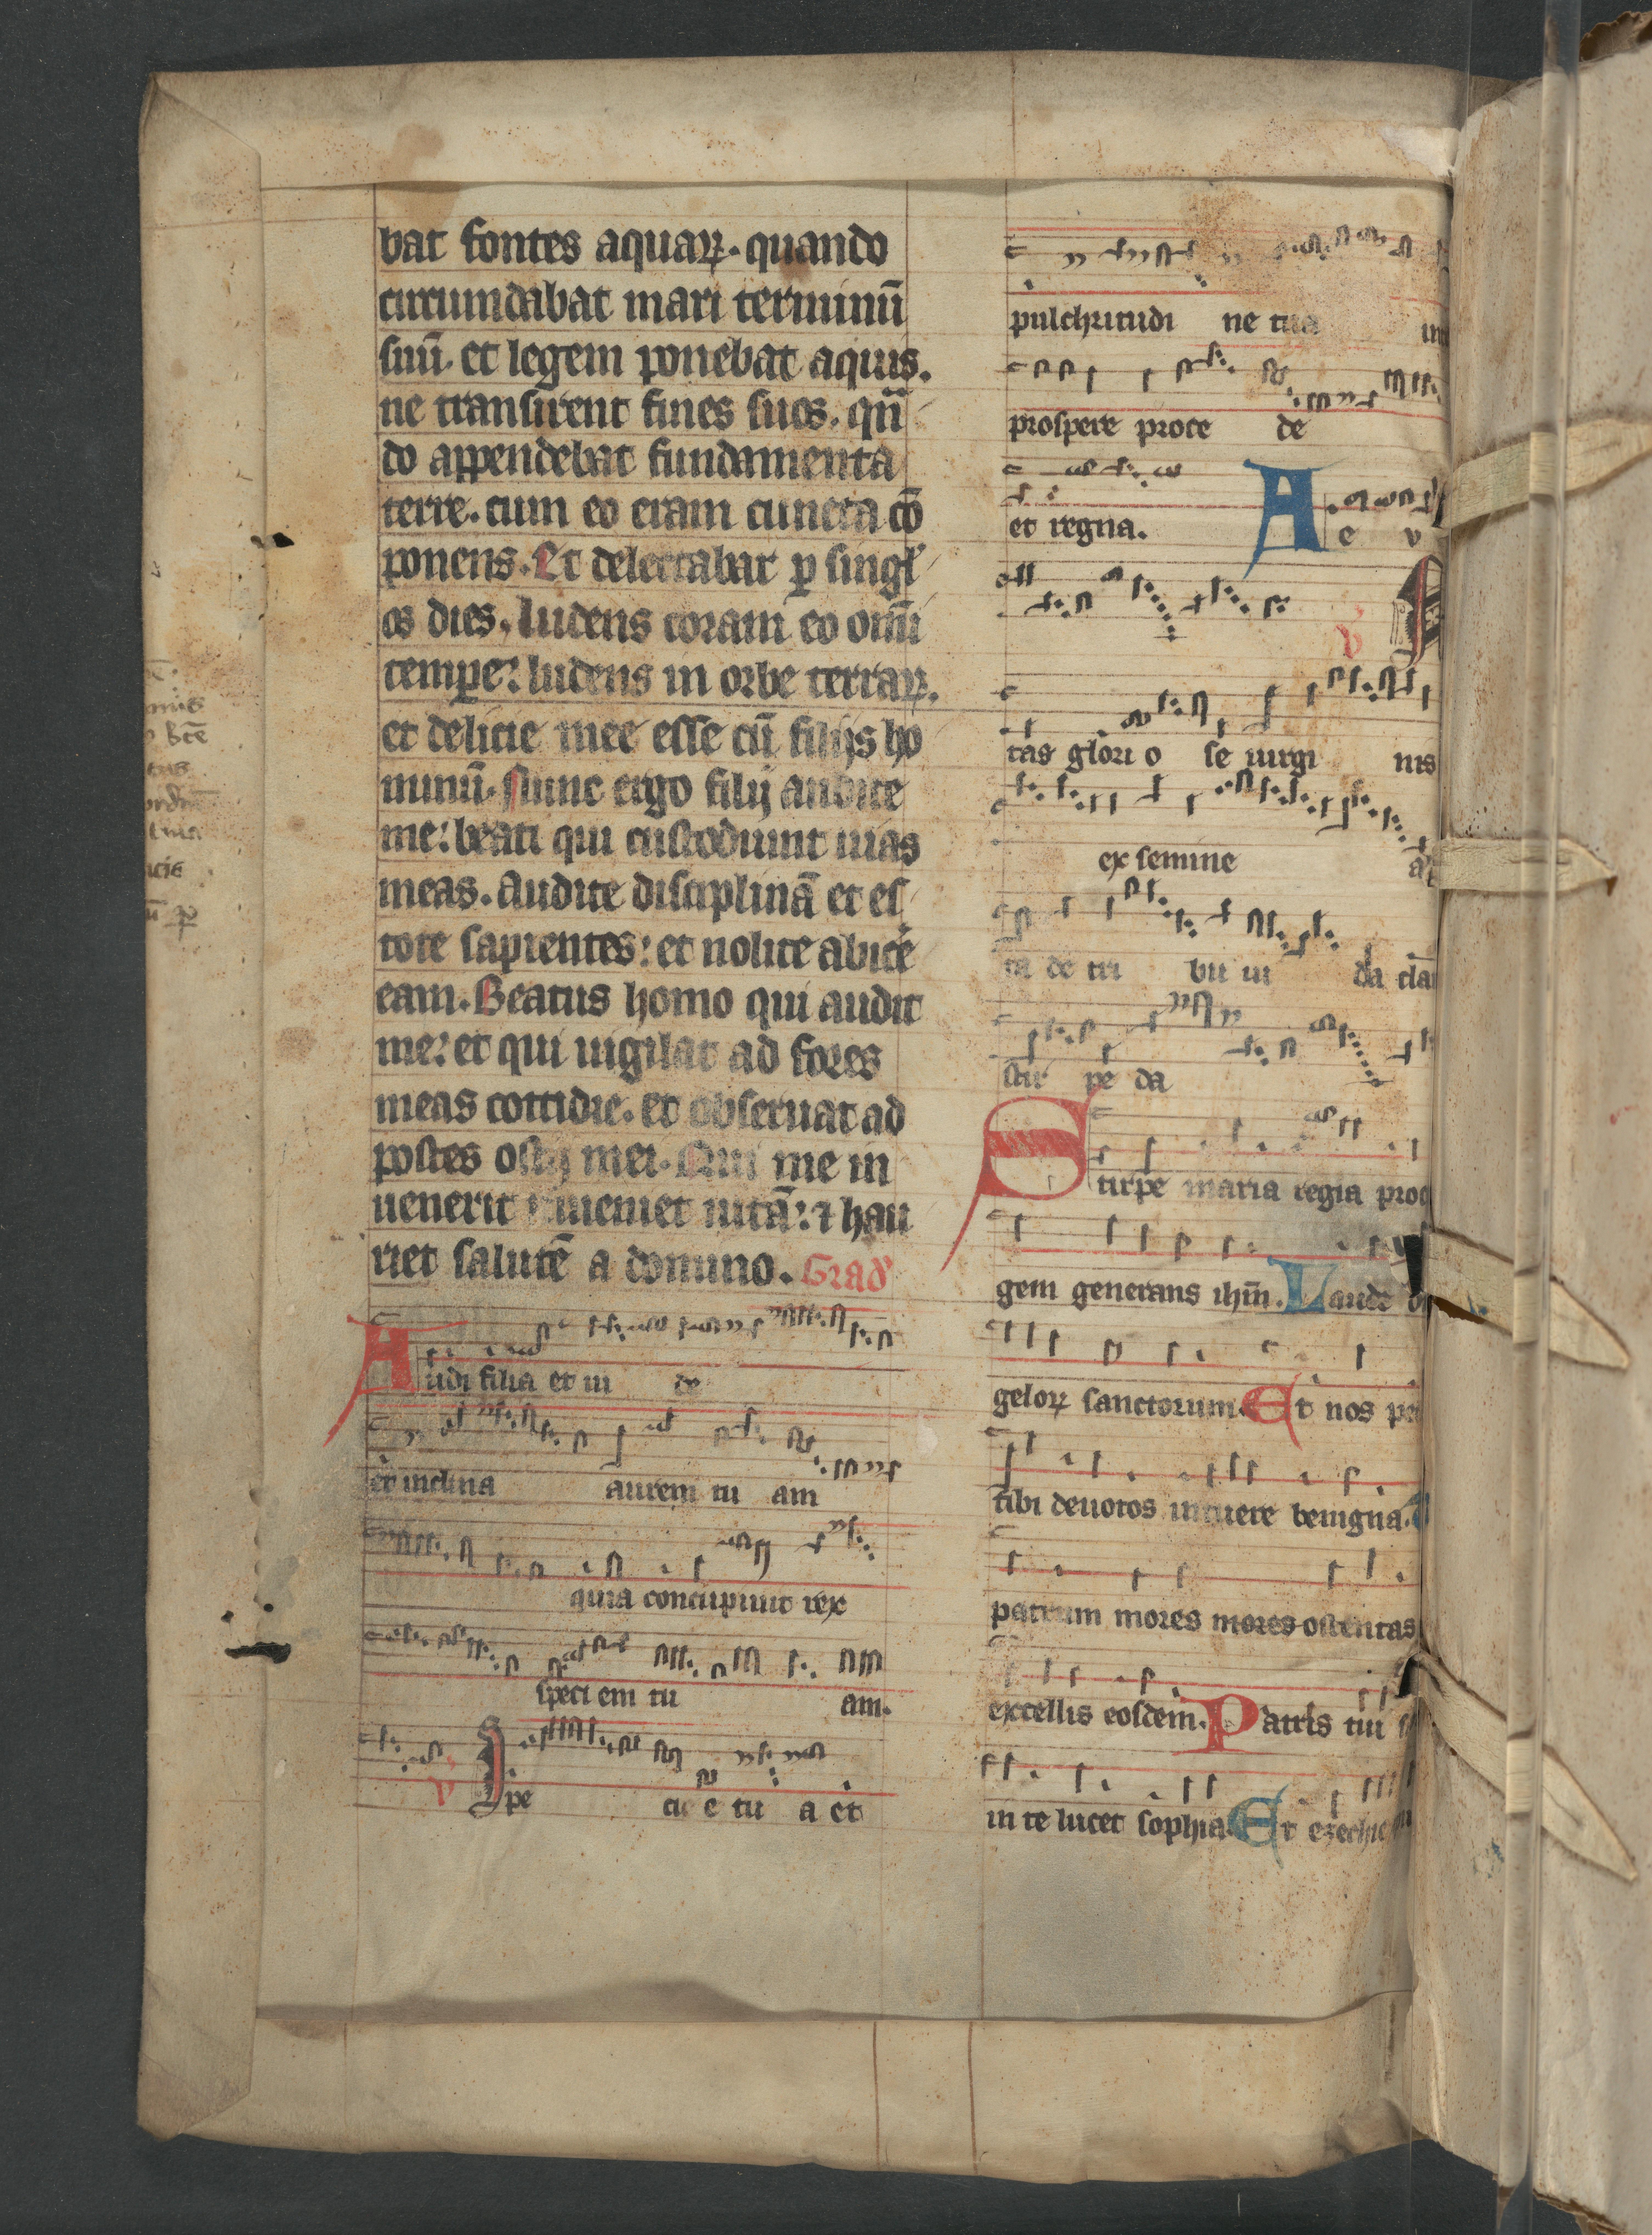 bat fontes aquaꝝ. quando
circumdabat mari terminū
suū. et legem ponebat aquis.
ne transirent fines suos. qñ
do appendebat fundamenta
terre. cum eo eram cuncta cō
ponens. Et delectabar ꝑ singl'
os dies. ludens coram eo omī
temꝑe: ludens in orbe terraꝝ.
et delicie mee esse cū filijs ho
minū. Nunc ergo filij audite
me: beati qui custodiunt uias
meas. Audite disciplinā et es
tote sapientes: et nolite abice
eam. Beatus homo qui audit
me: et qui uigilat ad fores
meas cottidie. et obseruat ad
postes ostij mei. Qui me in
uenerit inueniet uitā: ⁊ hau
riet salutē a domino. Grad'
Audi filia et ui de
et inclina aurem tu am
quia concupiuit rex
speci em tu am.
v Spe cie tu a et
pulchritudi ne tua in
prospere proce de
et regna. A e v
v
tas glori o se uirgi nis
ex semine a
ta de tri bu iu da cla
stir pe da
Stirpe maria regia proc
gem generans ihm̄. Laude
geloꝝ sanctorum. Et nos pec
tibi deuotos intuere benigna.
patrum mores mores ostentas
excellis eosdem. Patris tui
in te lucet sophia. Et ezechie